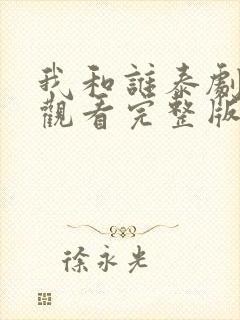 我和誰泰劇
觀看完整版
徐永光